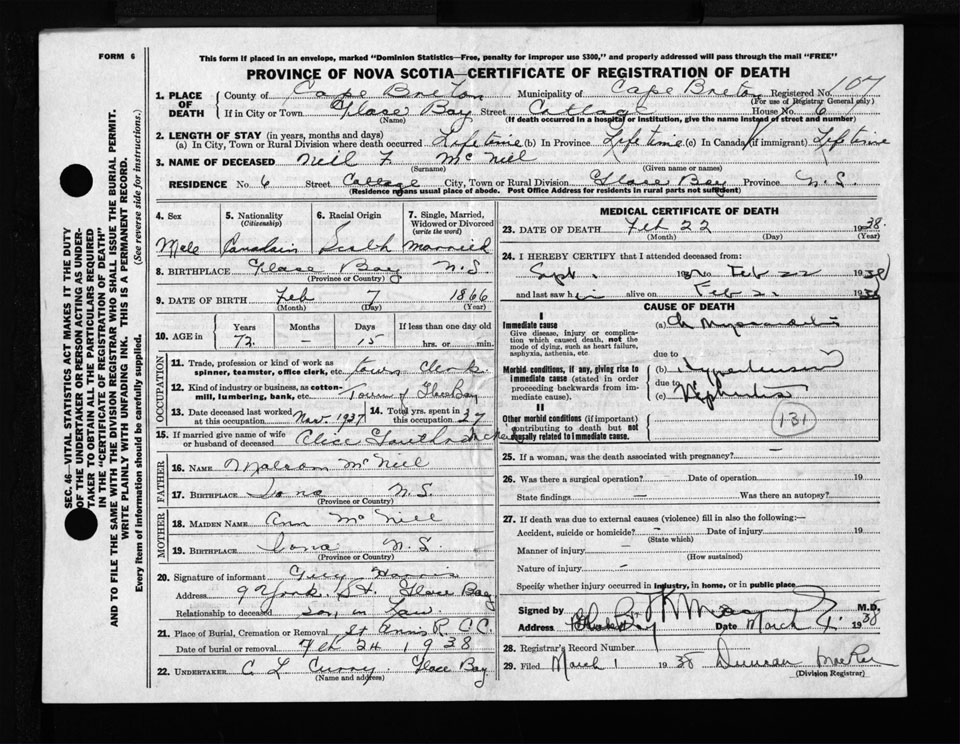 FORM 6
This form if placed in an envelope, marked "Dominion Statistics—Free, penalty for improper use $300," and properly addressed will pass through the mail "FREE"
PROVINCE OF NOVA SCOTIA—CERTIFICATE OF REGISTRATION OF DEATH
1. PLACE OF DEATH County of Cape Breton Municipality of Cape Breton Registered No. 107
(For use of Registrar General only)
If in City or Town Glace Bay Street Cottage House No. 6
(Name) (If death occurred in a hospital or institution, give the name instead of street and number)
2. LENGTH OF STAY (in years, months and days)
(a) In City, Town or Rural Division where death occurred Lifetime (b) In Province Lifetime (c) In Canada (if immigrant) Lifetime
3. NAME OF DECEASED Neil F. McNeil
(Surname) (Given name or names)
RESIDENCE No. 6 Street Cottage City, Town or Rural Division Glace Bay Province N.S.
(Residence means usual place of abode. Post Office Address for residents in rural parts not sufficient)
4. Sex Male
5. Nationality (Citizenship)
6. Racial Origin
7. Single, Married, Widowed or Divorced (write the word) Married
8. BIRTHPLACE Glace Bay N.S.
(Province or Country)
9. DATE OF BIRTH Feb 7 1866
(Month) (Day) (Year)
10. AGE in Years Months Days If less than one day old
72 — 15 hrs. or min.
OCCUPATION
11. Trade, profession or kind of work as spinner, teamster, office clerk, etc. Town Clerk
12. Kind of industry or business, as cotton-mill, lumbering, bank, etc. Town of Glace Bay
13. Date deceased last worked at this occupation Nov. 1937 14. Total yrs. spent in this occupation 37
15. If married give name of wife or husband of deceased Alice
FATHER
16. NAME McNeil
17. BIRTHPLACE Iona N.S.
(Province or Country)
MOTHER
18. MAIDEN NAME Ann McNeil
19. BIRTHPLACE Iona N.S.
(Province or Country)
20. Signature of informant
Address 9 York St. Glace Bay
Relationship to deceased son in law
21. Place of Burial, Cremation or Removal St Anns R.C.C.
Date of burial or removal Feb 24 1938
22. UNDERTAKER C L Curry Glace Bay
(Name and address)
MEDICAL CERTIFICATE OF DEATH
23. DATE OF DEATH Feb 22 1938.
(Month) (Day) (Year)
24. I HEREBY CERTIFY that I attended deceased from:
Sept. 1937 to Feb 22 1938
and last saw him alive on Feb 1938
CAUSE OF DEATH
I
Immediate cause
Give disease, injury or complication which caused death, not the mode of dying, such as heart failure, asphyxia, asthenia, etc
(a) Ch Myocarditis
due to
Morbid conditions, if any, giving rise to immediate cause (stated in order proceeding backwards from immediate cause).
(b) Hypertension
due to
(c) Nephritis
II
Other morbid conditions (if important) contributing to death but not causally related to immediate cause.
131
25. If a woman, was the death associated with pregnancy? —
26. Was there a surgical operation? Date of operation 19
State findings — Was there an autopsy?
27. If death was due to external causes (violence) fill in also the following:—
Accident, suicide or homicide? — Date of injury 19
(State which)
Manner of injury —
(How sustained)
Nature of injury —
Specify whether injury occurred in industry, in home, or in public place
Signed by M.D.
Address Glace Bay Date March 1 1938
28. Registrar's Record Number
29. Filed March 1 1938 Duncan MacRae
(Division Registrar)
SEC. 46—VITAL STATISTICS ACT MAKES IT THE DUTY
OF THE UNDERTAKER OR PERSON ACTING AS UNDER-
TAKER TO OBTAIN ALL THE PARTICULARS REQUIRED
IN THE "CERTIFICATE OF REGISTRATION OF DEATH"
AND TO FILE THE SAME WITH THE DIVISION REGISTRAR WHO SHALL ISSUE THE BURIAL PERMIT.
WRITE PLAINLY WITH UNFADING INK. THIS IS A PERMANENT RECORD.
Every item of information should be carefully supplied. (See reverse side for instructions.)